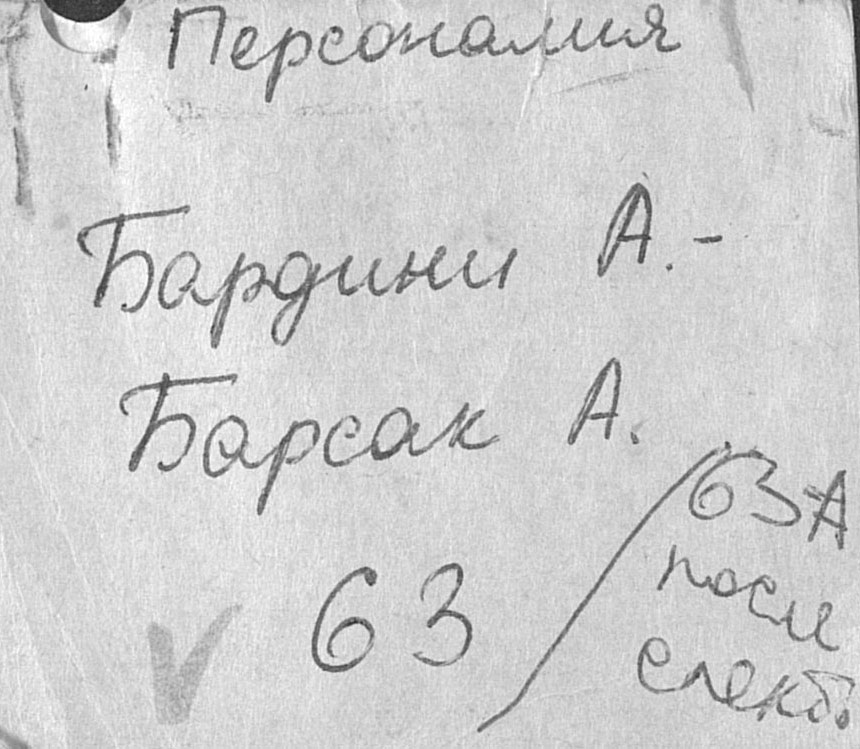 Персоналия
Бардини А.-
Барсак А.
63
63А
после